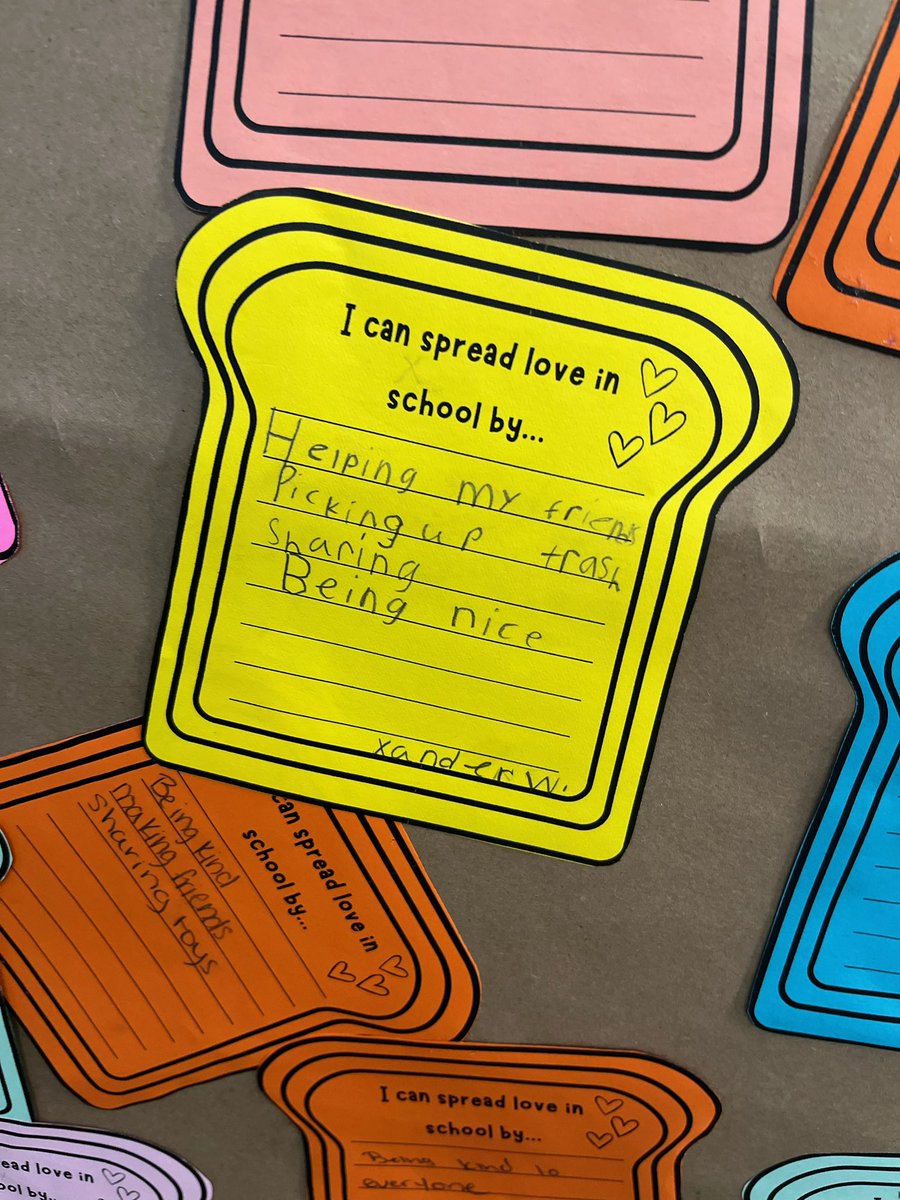 I can spread love in
school by...
Helping my friends
Picking up trash
sharing
Being nice
xander w.
can spread love in
school by...
Being kind
making friends
sharing toys
I can spread love in
school by...
Being kind to
everyone
ead love in
ool by...